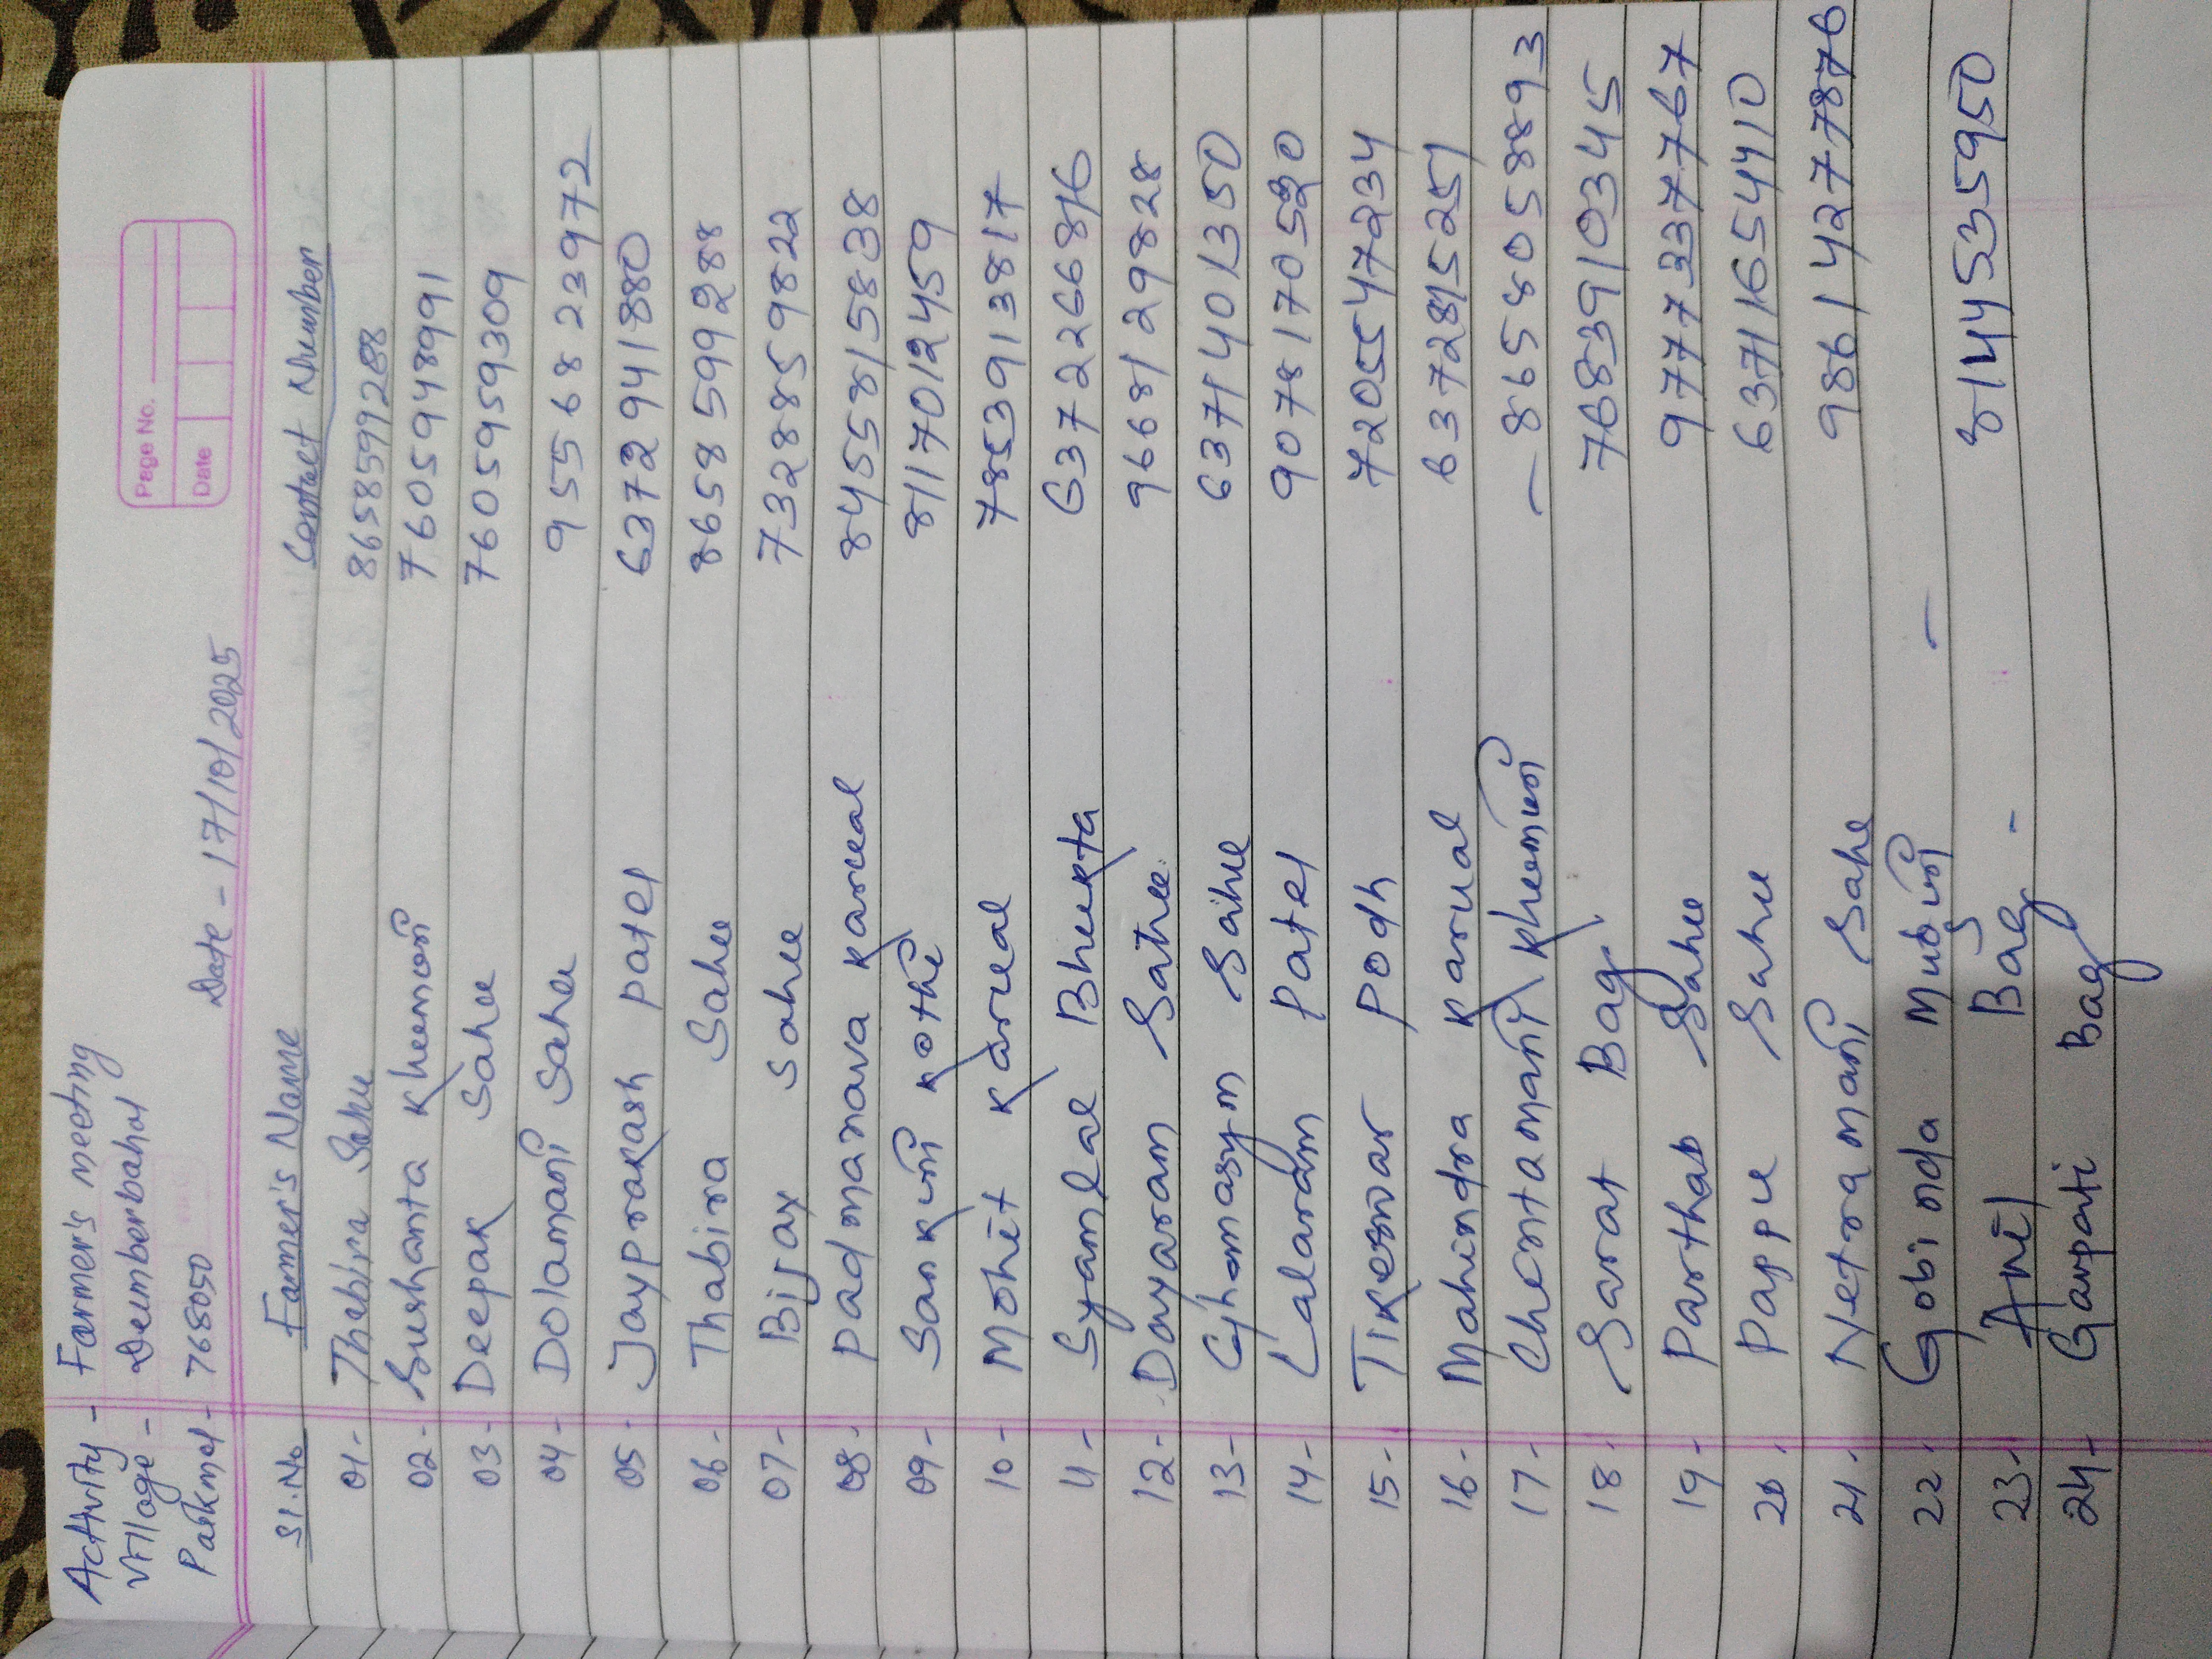 Page No.
Date
Activity - Farmer's meeting
Village - Deumberbahal
Paikmal - 768050 Date - 17/10/2025
Sl.No Farmer's Name Contact Number
01- Thabira Sahu 8658599288
02- Sushanta Kheman 7605948991
03- Deepak Sahu 7605959309
04- Dolamani Sahu 9556823972
05- Jayprakash patel 6372941880
06- Thabira Sahu 8658599288
07- Bijay sahu 7328859822
08- padmanava karual 8455815838
09- Sankuni kothi 8117012459
10- Mohit karual 7853913817
11- Syamlal Bhukta 6372266816
12- Dayaram Sahu 9668129828
13- Sahu 6371401350
14- Lalaram Patel 9078170520
15- Tikeswar podh 7205547234
16- Mahindra karual 6372815251
17- Chentamani - 8658058893
18- Sarat Bag 7683910345
19- Parthab Sahu 9777337767
20- Pappu Sahu 63711654410
21- Netramani Sahu 9861427787
22- Gobinda -
23- Anil Bag - 8144535950
24- Ganpati Bag